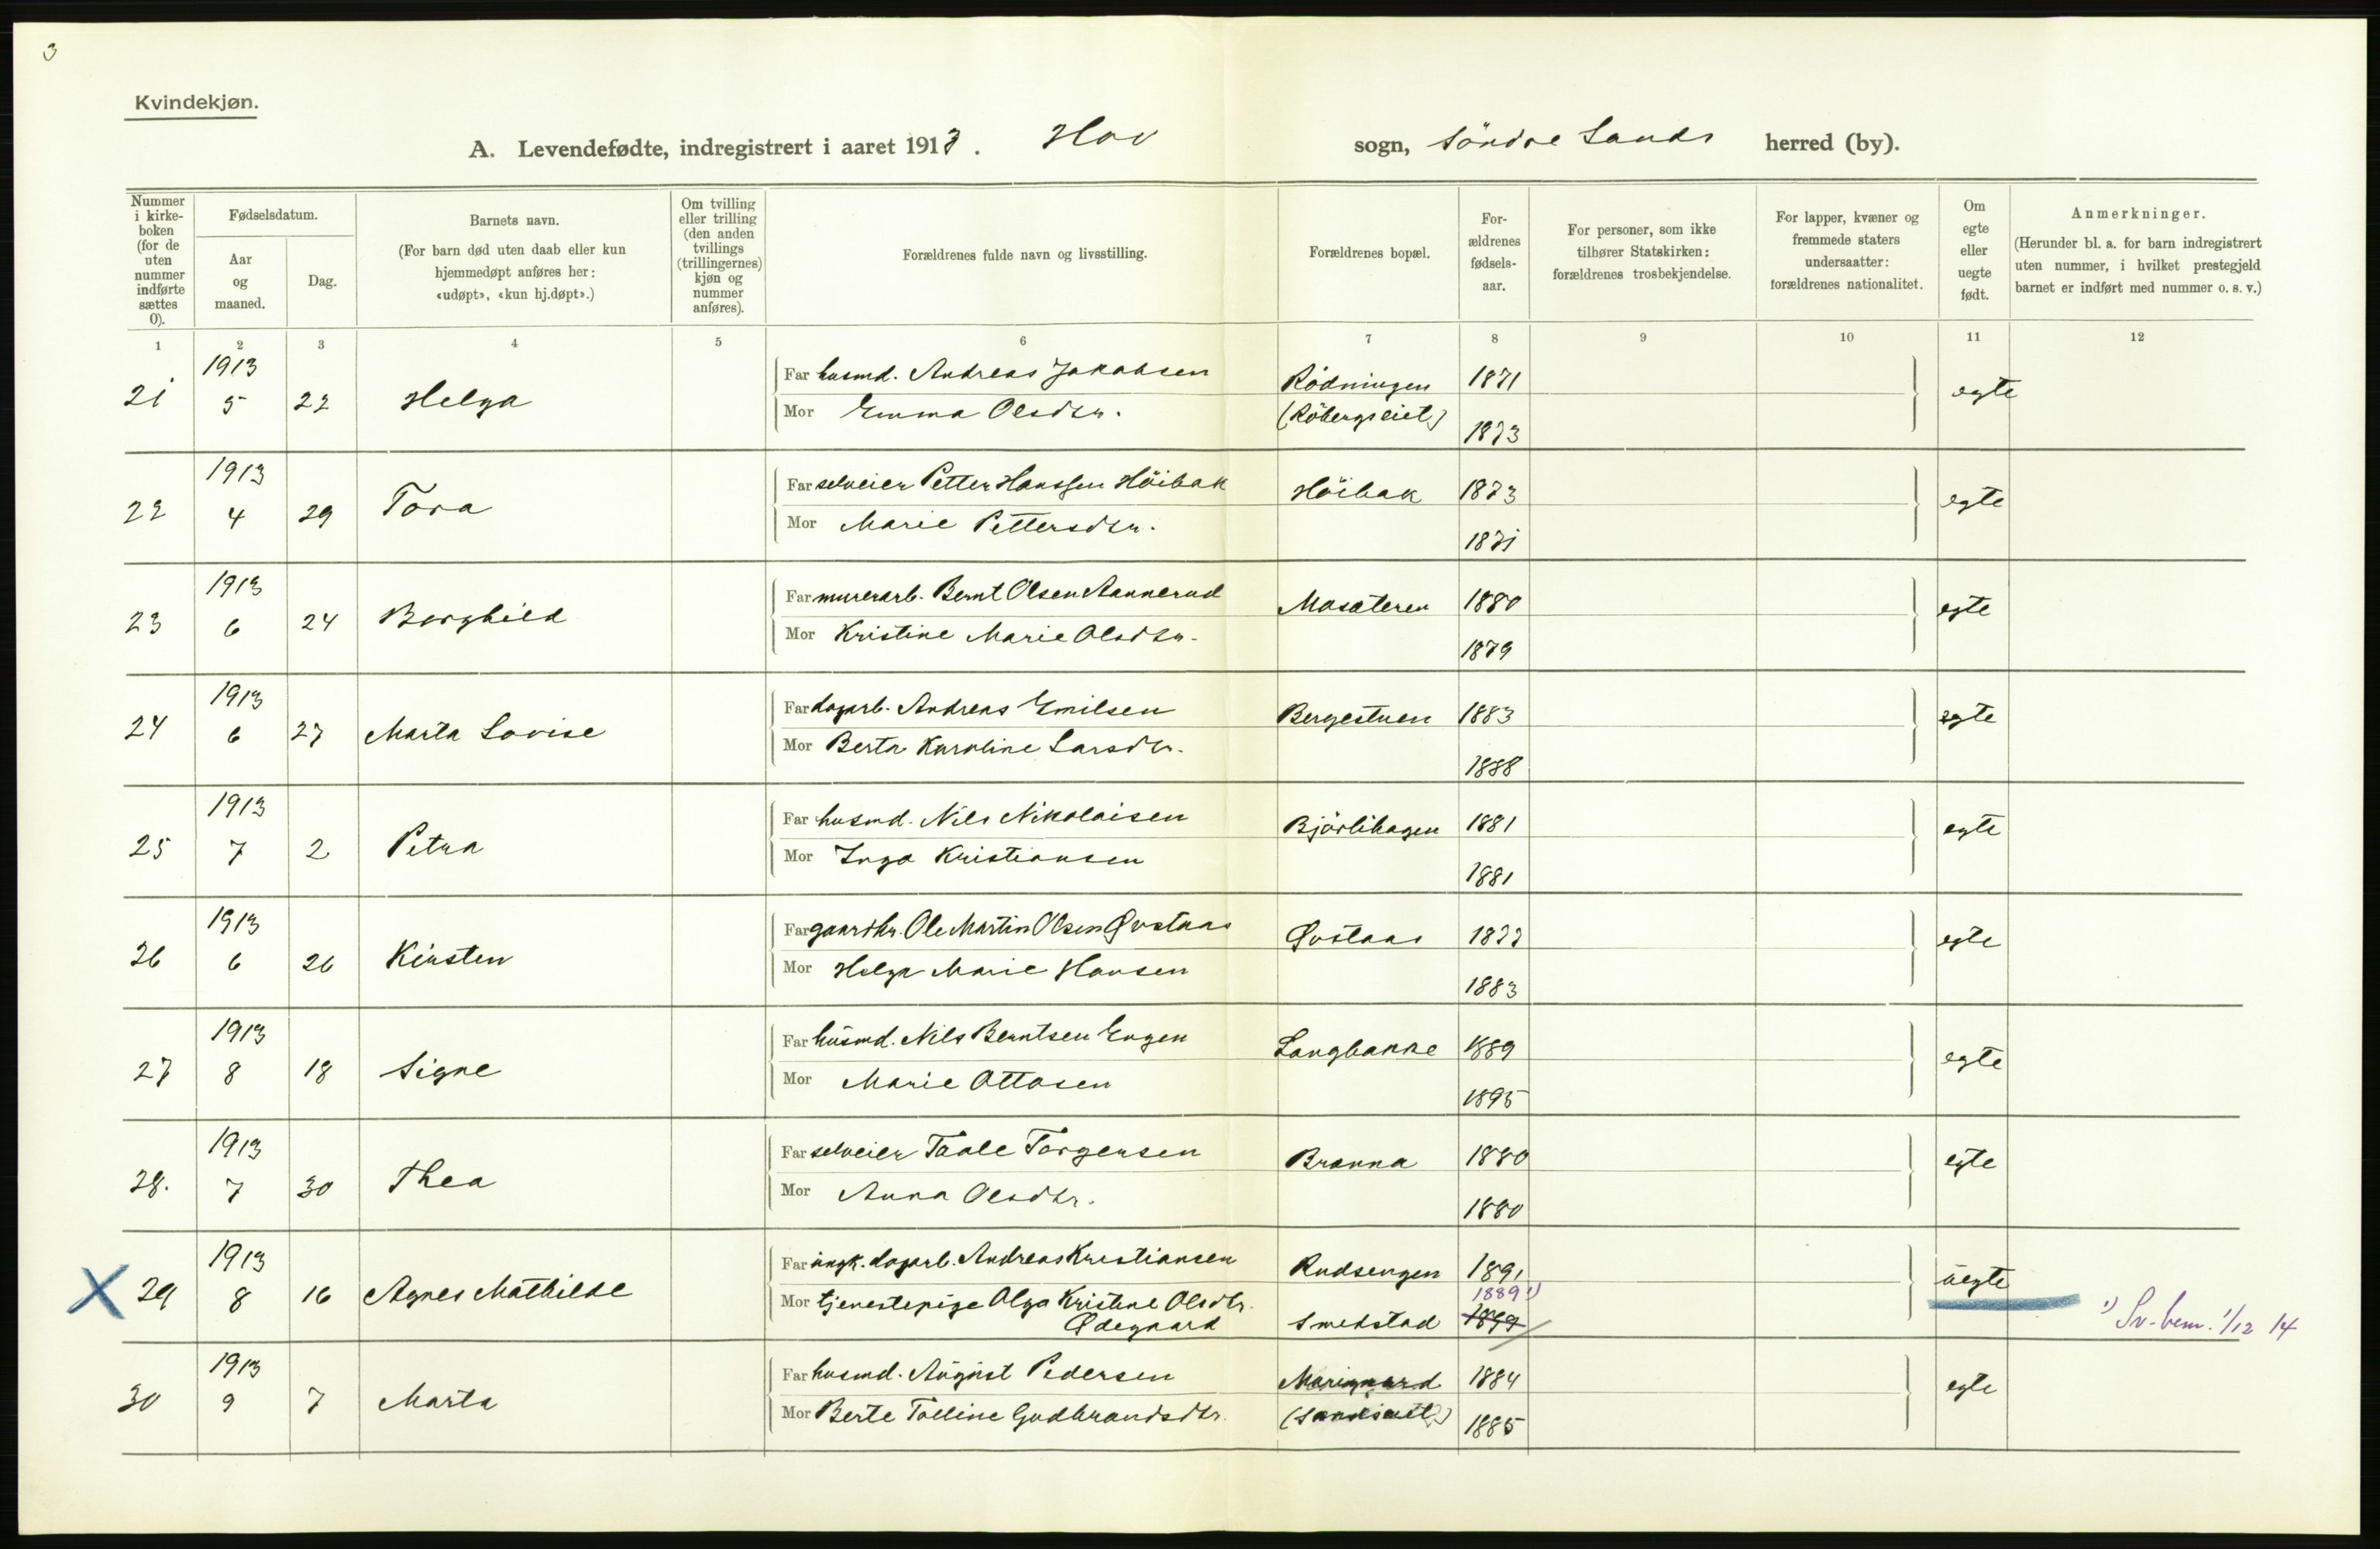 3
Kvindekjøn.
A. Levendefødte, indregistrert i aaret 1913. Hov sogn, Söndre Lands herred (by).
Nummer i kirke-boken (for de uten nummer indførte sættes 0).
Fødselsdatum.
Aar og maaned.
Dag.
Barnets navn.
(For barn død uten daab eller kun hjemmedøpt anføres her: «udøpt», «kun hj.døpt».)
Om tvilling eller trilling (den anden tvillings (trillingernes) kjøn og nummer anføres).
Forældrenes fulde navn og livsstilling.
Forældrenes bopæl.
For-ældrenes fødsels-aar.
For personer, som ikke tilhører Statskirken: forældrenes trosbekjendelse.
For lapper, kvæner og fremmede staters undersaatter: forældrenes nationalitet.
Om egte eller uegte født.
Anmerkninger.
(Herunder bl. a. for barn indregistrert uten nummer, i hvilket prestegjeld barnet er indført med nummer o. s. v.)
1 2 3 4 5 6 7 8 9 10 11 12
21 1913 5 22 Helga Far husmd. Andreas Jakobsen Rödningen 1871 egte
Mor Emma Olsdtr. (Röbergseiet) 1873
22 1913 4 29 Tora Far selveier Petter Hanssen Höibak Höibak 1873 egte
Mor Marie Pettersdtr. 1871
23 1913 6 24 Borghild Far murerarb. Bernt Olsen Aannerud Mosæteren 1880 egte
Mor Kristine Marie Olsdtr. 1879
24 1913 6 27 Marta Lovise Far dagarb. Andreas Emilsen Bergestuen 1883 egte
Mor Berta Karoline Larsdtr. 1888
25 1913 7 2 Petra Far husmd. Nils Nikolaisen Björlihagen 1881 egte
Mor Inga Kristiansen 1881
26 1913 6 26 Kirsten Far gaardbr. Ole Martin Olsen Øvstaas Øvstaas 1877 egte
Mor Helga Marie Hansen 1883
27 1913 8 18 Signe Far husmd. Nils Berntsen Engen Langbakke 1889 egte
Mor Marie Ottosen 1895
28. 1913 7 30 Thea Far selveier Taale Torgersen Branna 1880 egte
Mor Anna Olsdtr. 1880
X 29 1913 8 16 Agnes Mathilde Far ungk. dagarb. Andreas Kristiansen Rudsengen 1891 uegte
Mor tjenestepige Olga Kristine Olsdtr. Ødegaard Smedstad 1889 1) 1) Sv. bem. 1/12 14
30 1913 9 7 Marta Far husmd. August Pedersen 1884 egte
Mor Berte Tolline Gudbrandsdtr. 1885